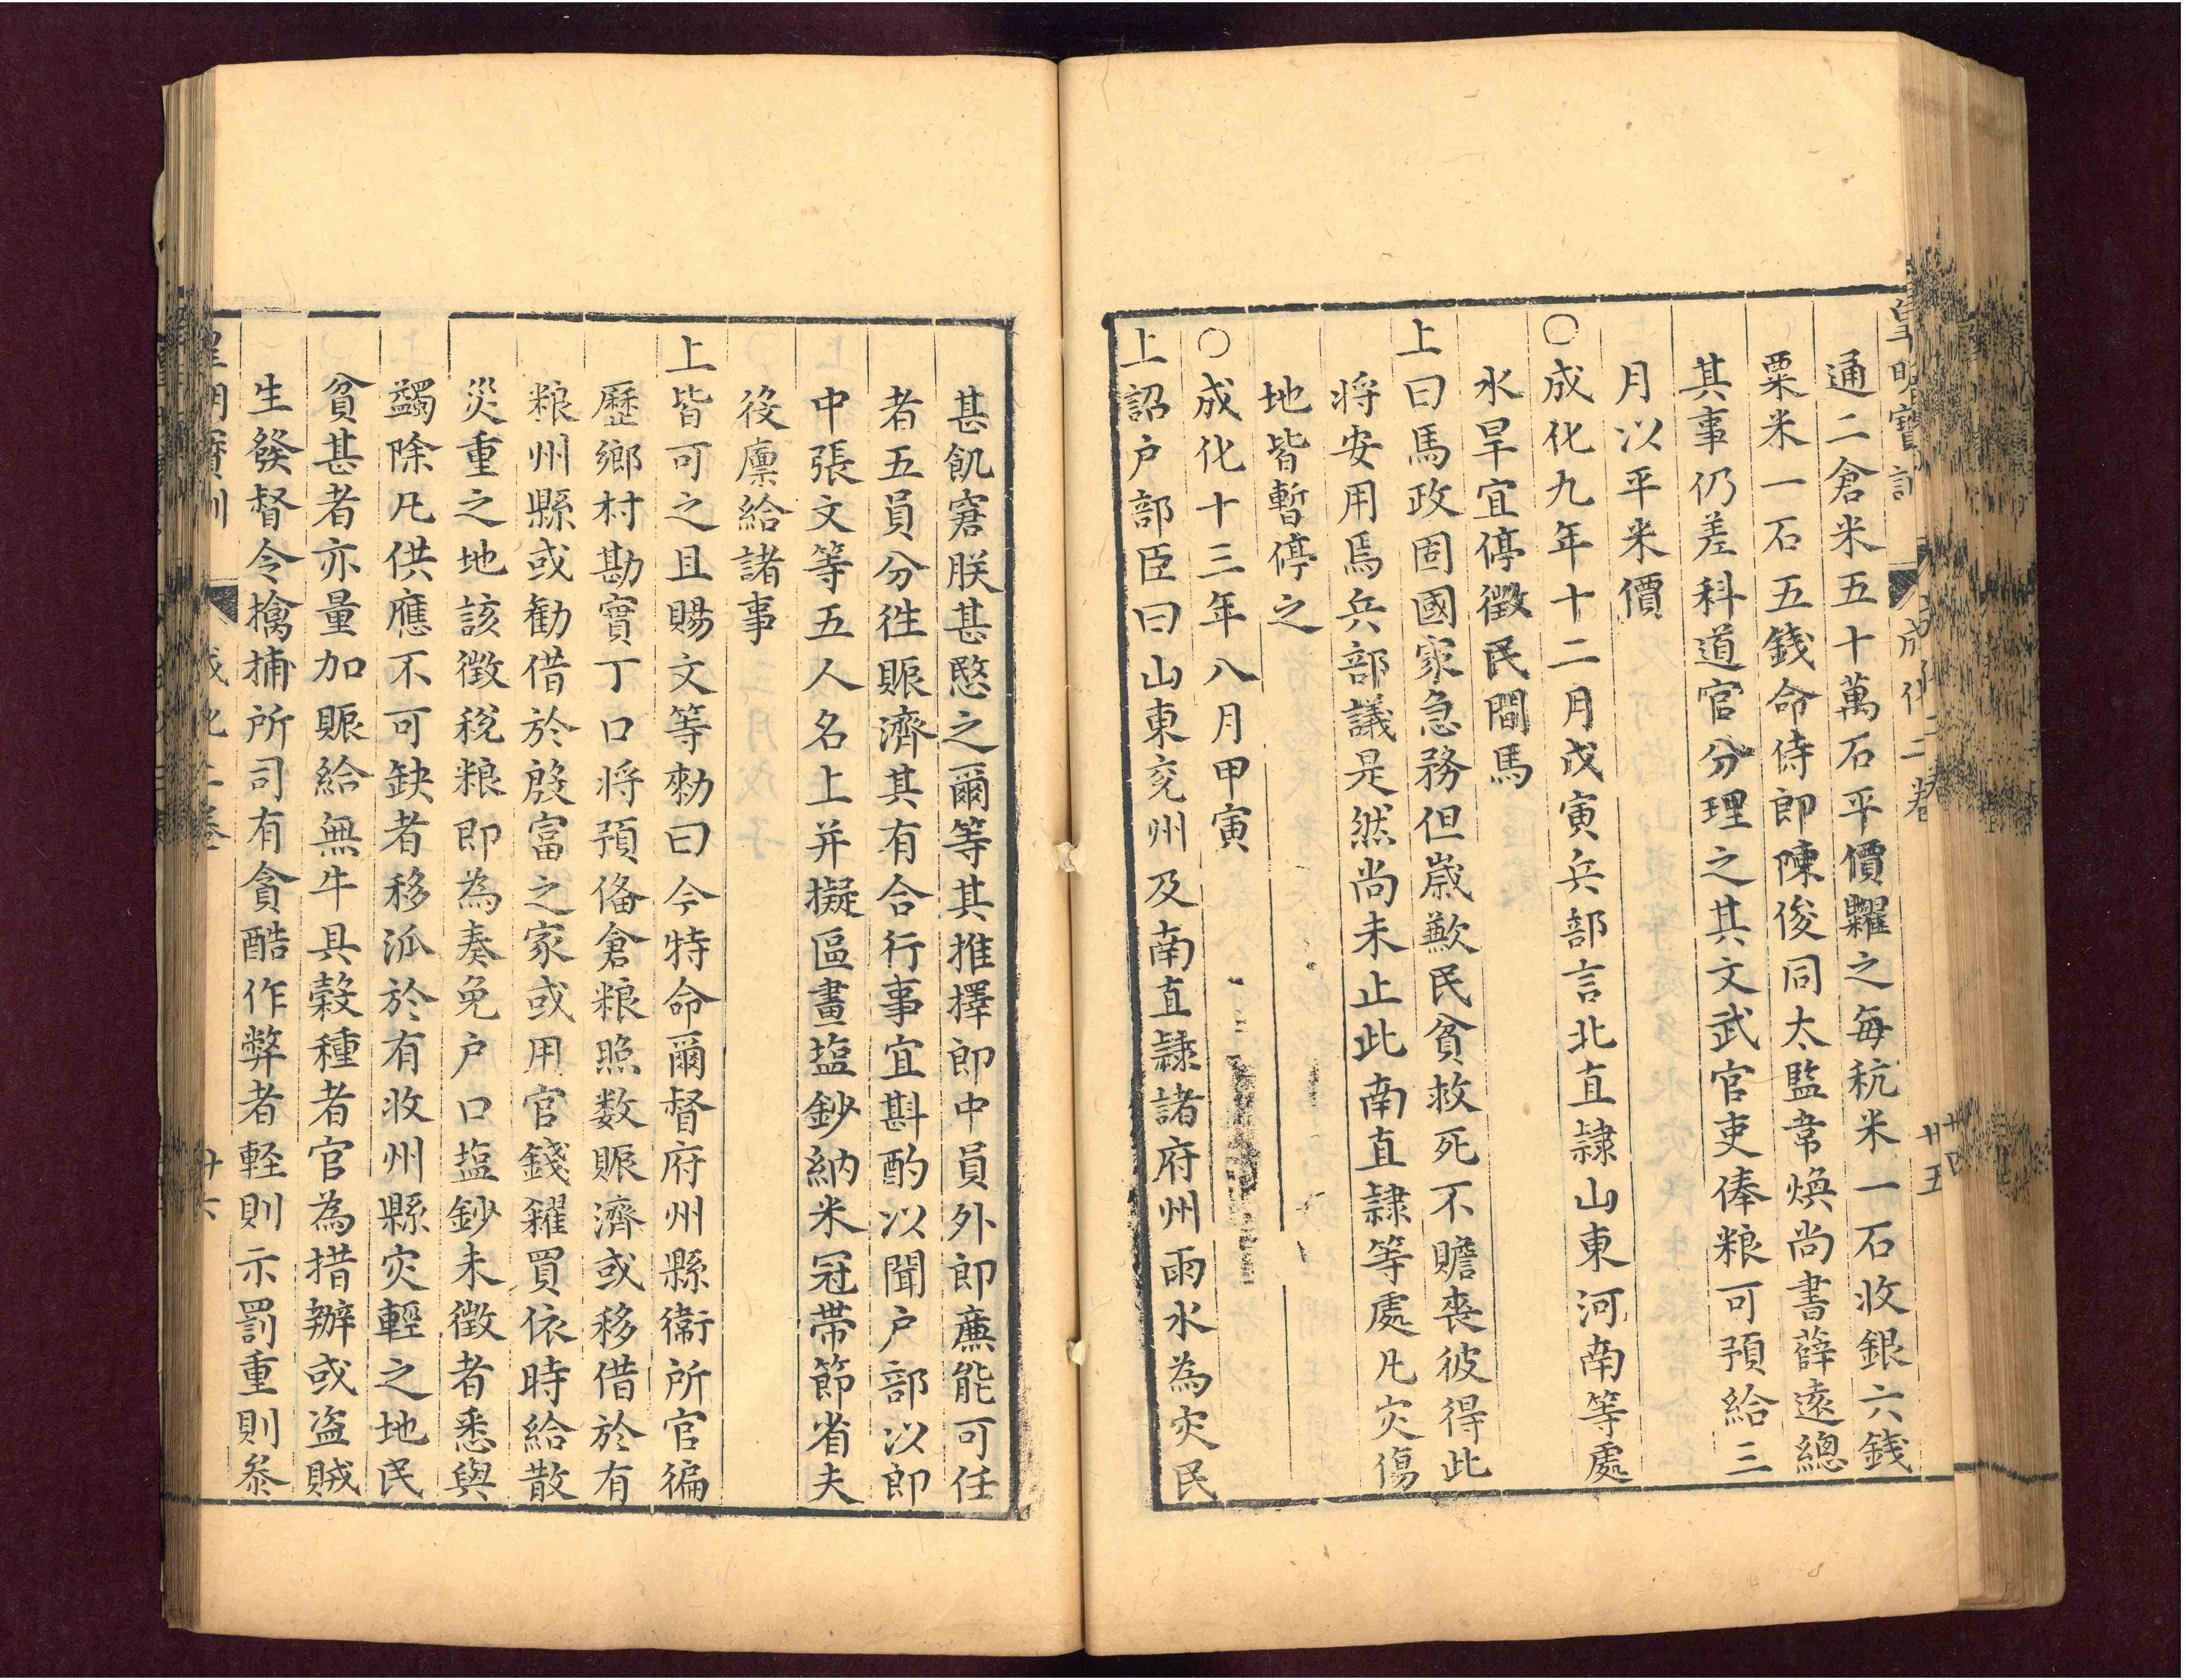 皇明寶訓 成化二卷 廿五
通二倉米五十萬石平價糶之每秔米一石收銀六錢
粟米一石五錢命侍郎陳俊同太監韋煥尚書薛遠總
其事仍差科道官分理之其文武官吏俸粮可預給三
月以平米價
○成化九年十二月戊寅兵部言北直隸山東河南等處
水旱宜停徵民間馬
上曰馬政固國家急務但歲歉民貧救死不贍喪彼得此
将安用焉兵部議是然尚未止此南直隸等處凡灾傷
地皆暫停之
○成化十三年八月甲寅
上詔户部臣曰山東兖州及南直隸諸府州雨水為灾民
甚飢窘朕甚愍之爾等其推擇郎中員外郎廉能可任
者五員分徃賑濟其有合行事宜斟酌以聞户部以郎
中張文等五人名上并擬區畫塩鈔納米冠帶節省夫
役廪給諸事
上皆可之且賜文等勑曰今特命爾督府州縣衛所官徧
歷鄉村勘實丁口将預俻倉粮照数賑濟或移借於有
粮州縣或勸借於殷富之家或用官錢糴買依時給散
災重之地該徴税粮即為奏免户口塩鈔未徴者悉與
蠲除凡供應不可缺者移派於有收州縣灾輕之地民
貧甚者亦量加賑給無牛具榖種者官為措辦或盗賊
生發督令擒捕所司有貪酷作弊者輕則示罰重則叅
皇明寶訓 成化二卷 廿六